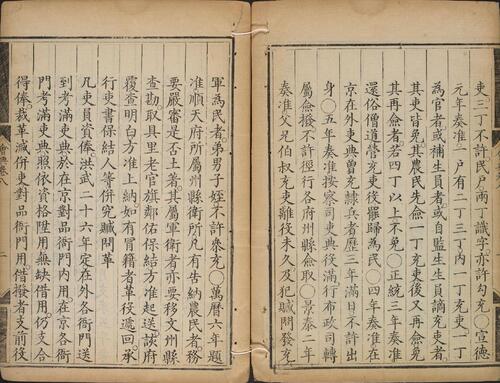 吏三丁不許民戶兩丁識字亦許勾充〇宣德
元年奏准一户有二丁三丁內一丁充吏一丁
為官者或補生員者或自監生生員謫充吏者
其吏皆免其農民先僉一丁充吏後又再僉免
其再僉者若四丁以上不免〇正統三年奏准
還俗僧道營充吏後罷歸為民〇四年奏准在
京在外吏典曾充隷兵者歷三年滿日不許出
身〇五年奏准按察司吏典役滿行布政司轉
屬僉撥不許徑行各府州縣僉取〇景泰二年
奏准父兄伯叔充吏離役未久及犯贓問發充
軍為民者弟男子姪不許叅充〇萬曆六年題
准順天府所屬州縣衛所凡有告納農民者務
要嚴審是否土著其屬軍衛者亦要移文州縣
查勘取具里老官旗鄰佑保結方准起送該府
覆查明白方准上納如有冒籍者革役遞回承
行吏書保結人等併究贓問革
凡吏員資俸洪武二十六年定在外各衙門送
到考滿吏典於在京對品衙門內用在京各衙
門考滿吏典照依資格陞用無缺借用仍支合
得俸裁革減併吏對品衙門用借撥者支前役
會典卷八
二